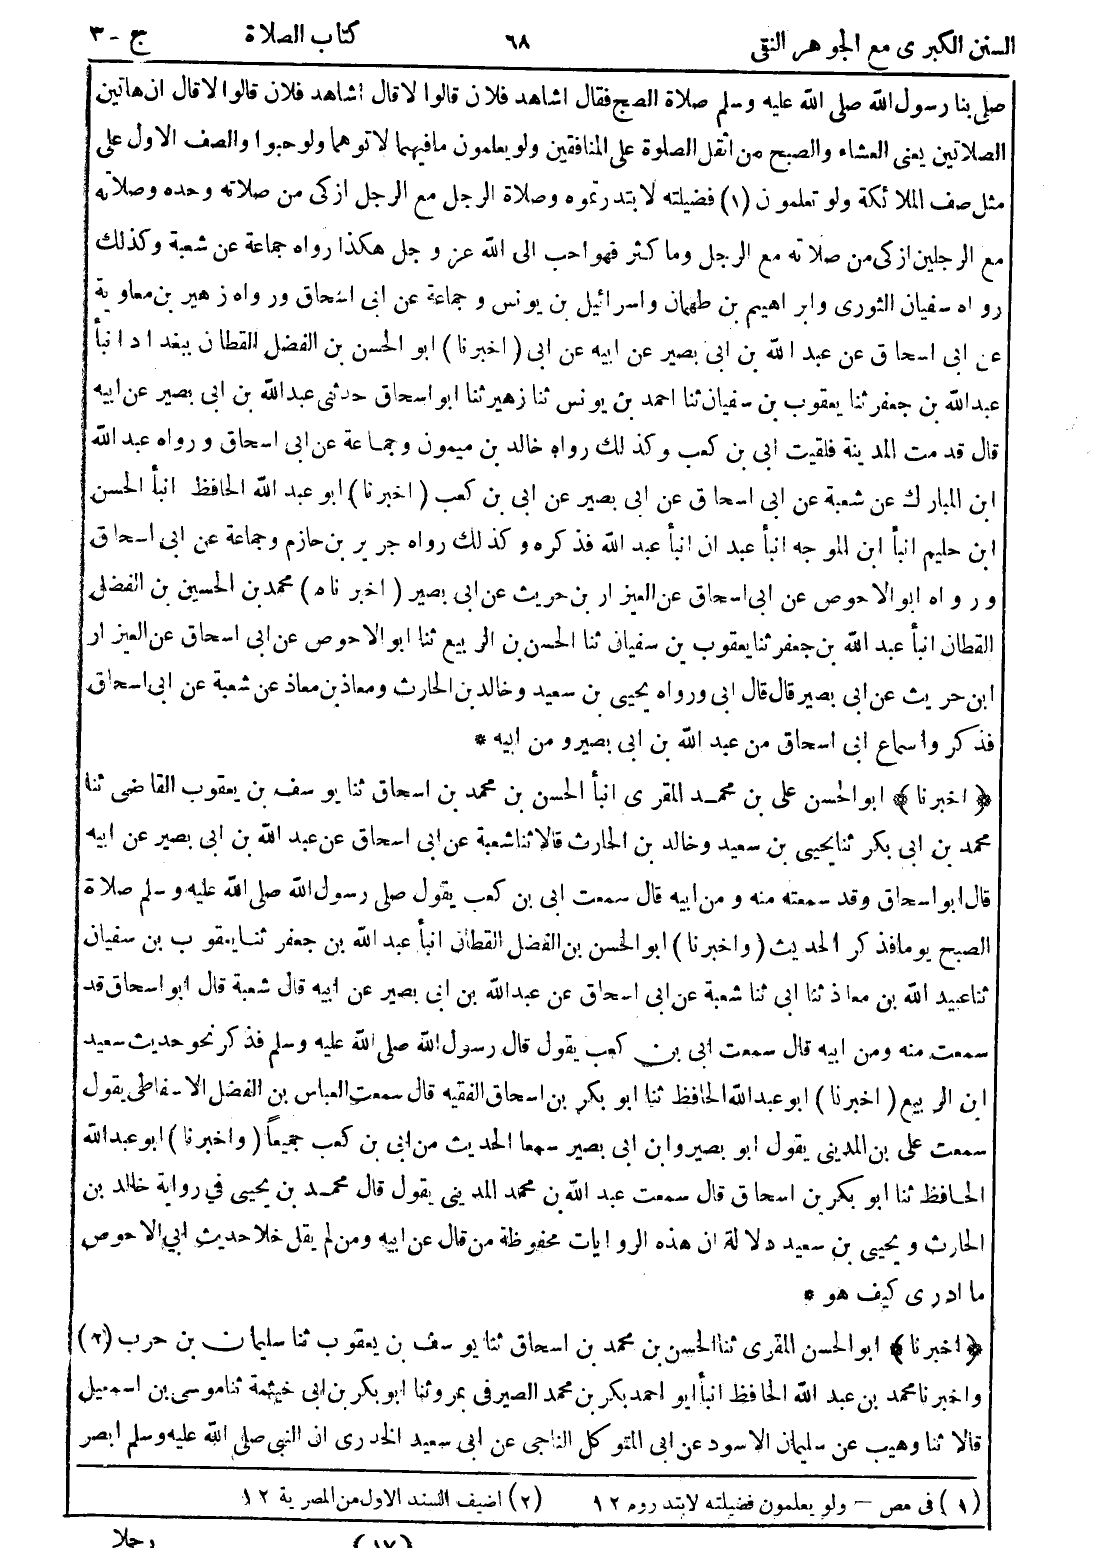 السنن الكبرى مع الجوهر النقى ٦٨ كتاب الصلاة ج - ٣
صلى بنا رسول الله صلى الله عليه وسلم صلاة الصبح فقال اشاهد فلان قالوا لا قال اشاهد فلان قالوا لا قال ان هاتين
الصلاتين يعنى العشاء والصبح من اثقل الصلوة على المنافقين ولو يعلمون مافيهما لا توهما ولو حبوا والصف الاول على
مثل صف الملائكة ولو تعلمون (١) فضيلته لابتدرتموه وصلاة الرجل مع الرجل ازكى من صلاته وحده وصلاته
مع الرجلين ازكى من صلاته مع الرجل وما كثر فهو احب الى الله عز و جل هكذا رواه جماعة عن شعبة وكذلك
رواه سفيان الثورى وابراهيم بن طهمان واسرائيل بن يونس وجماعة عن ابى اسحاق ورواه زهير بن معاوية
عن ابى اسحاق عن عبد الله بن ابى بصير عن ابيه عن ابى (اخبرنا) ابو الحسن بن الفضل القطان ببغداد انبأ
عبد الله بن جعفر ثنا يعقوب بن سفيان ثنا احمد بن يونس ثنا زهير ثنا ابو اسحاق حدثنى عبد الله بن ابى بصير عن ابيه
قال قدمت المدينة فلقيت ابى بن كعب وكذلك رواه خالد بن ميمون وجماعة عن ابى اسحاق ورواه عبد الله
ابن المبارك عن شعبة عن ابى اسحاق عن ابى بصير عن ابى بن كعب (اخبرنا) ابو عبد الله الحافظ انبأ الحسن
ابن حليم انبأ ابن الموجه انبأ عبدان انبأ عبد الله فذكره وكذلك رواه جرير بن حازم وجماعة عن ابى اسحاق
ورواه ابو الاحوص عن ابى اسحاق عن العيزار بن حريث عن ابى بصير (اخبرناه) محمد بن الحسين بن الفضل
القطان انبأ عبد الله بن جعفر ثنا يعقوب بن سفيان ثنا الحسن بن الربيع ثنا ابو الاحوص عن ابى اسحاق عن العيزار
ابن حريث عن ابى بصير قال قال ابى ورواه يحيى بن سعيد وخالد بن الحارث ومعاذ بن معاذ عن شعبة عن ابى اسحاق
فذكروا سماع ابى اسحاق من عبد الله بن ابى بصير ومن ابيه *
﴿اخبرنا﴾ ابو الحسن على بن محمد المقرى انبأ الحسن بن محمد بن اسحاق ثنا يوسف بن يعقوب القاضى ثنا
محمد بن ابى بكر ثنا يحيى بن سعيد وخالد بن الحارث قالا ثنا شعبة عن ابى اسحاق عن عبد الله بن ابى بصير عن ابيه
قال ابو اسحاق وقد سمعته منه ومن ابيه قال سمعت ابى بن كعب يقول صلى رسول الله صلى الله عليه وسلم صلاة
الصبح يوما فذكر الحديث (واخبرنا) ابو الحسن بن الفضل القطان انبأ عبد الله بن جعفر ثنا يعقوب بن سفيان
ثنا عبيد الله بن معاذ ثنا ابى ثنا شعبة عن ابى اسحاق عن عبد الله بن ابى بصير عن ابيه قال شعبة قال ابو اسحاق قد
سمعت منه ومن ابيه قال سمعت ابى بن كعب يقول قال رسول الله صلى الله عليه وسلم فذكر نحو حديث سعيد
ابن الربيع (اخبرنا) ابو عبد الله الحافظ ثنا ابو بكر بن اسحاق الفقيه قال سمعت العباس بن الفضل الاسفاطى يقول
سمعت على بن المدينى يقول ابو بصير وابن ابى بصير سمعا الحديث من ابى بن كعب جميعاً (واخبرنا) ابو عبد الله
الحافظ ثنا ابو بكر بن اسحاق قال سمعت عبد الله بن محمد المدينى يقول قال محمد بن يحيى في رواية خالد بن
الحارث ويحيى بن سعيد دلالة ان هذه الروايات محفوظة من قال عن ابيه ومن لم يقل خلا حديث ابي الاحوص
ما ادرى كيف هو *
﴿اخبرنا﴾ ابو الحسن المقرى ثنا الحسن بن محمد بن اسحاق ثنا يوسف بن يعقوب ثنا سليمان بن حرب (٢)
واخبرنا محمد بن عبد الله الحافظ انبأ ابو احمد بكر بن محمد الصيرفى بمرو ثنا ابو بكر بن ابى خيثمة ثنا موسى بن اسمعيل
قالا ثنا وهيب عن سليمان الاسود عن ابى المتوكل الناجى عن ابى سعيد الخدرى ان النبى صلى الله عليه وسلم ابصر
(١) فى مص - ولو يعلمون فضيلته لابتدروه ١٢ (٢) اضيف السند الاول من المصرية ١٢
(١٧) رجلا